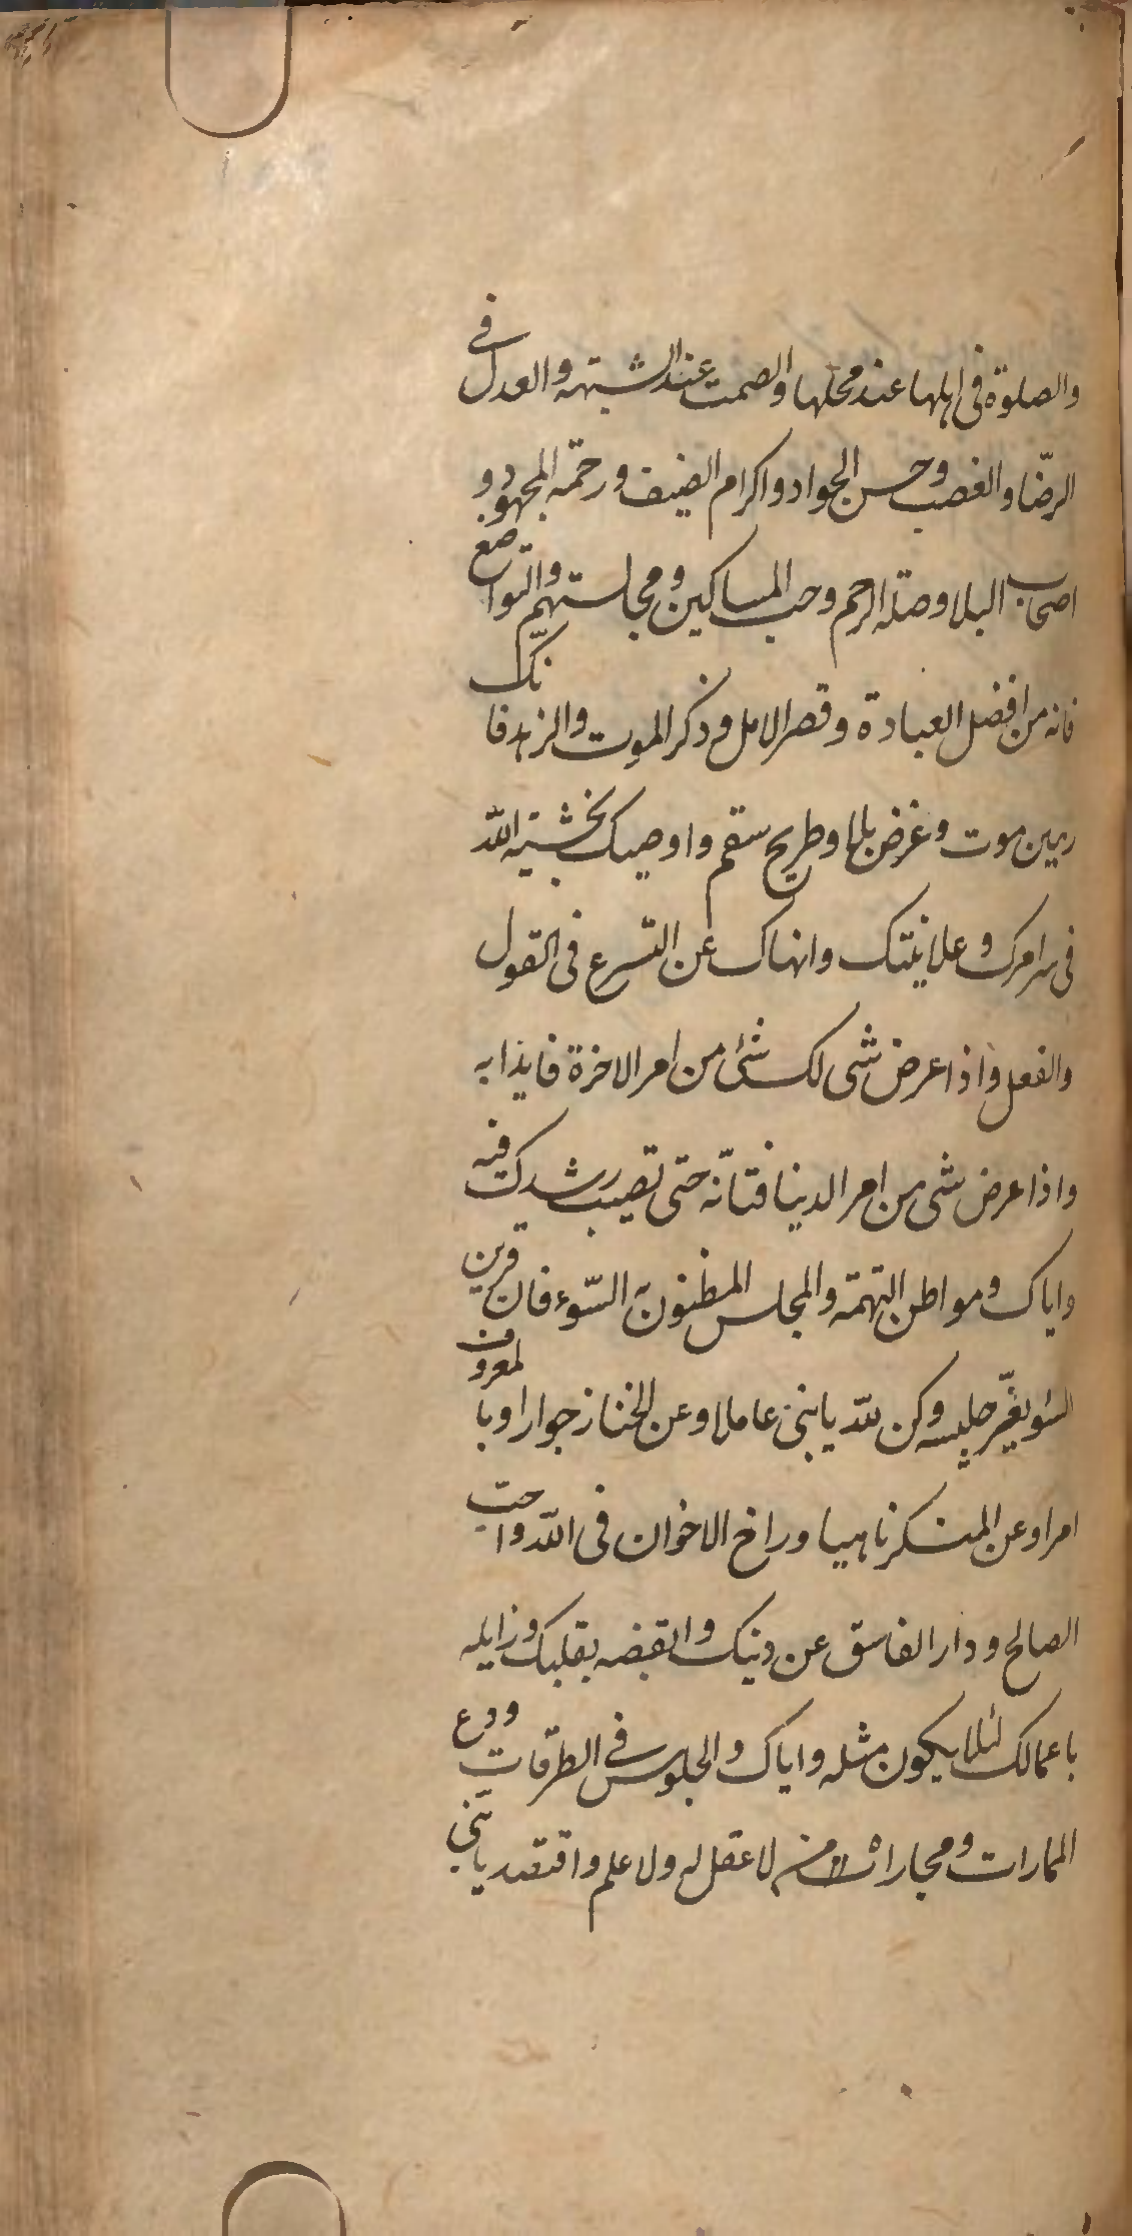 والصلوة فی اهلها عند محلها والصمت عند الشبهه والعدل فی
الرضّا والغضب وحسن الجواد واکرام الضیف ورحمه المجهود و
اصحاب البلا وصله الرحم وحب المساکین ومجالستهم والتواضع
فانه من افضل العبادة وقصر الامل وذکر الموت والزهد فانک
رهین موت وغرض بلا وطریح سقم واوصیک بخشیه اللّه
فی سر امرک وعلانیتک وانهاک عن التسرع فی القول
والفعل واذا عرض شی لک شئ من امر الاخرة فابذا به
واذا عرض شی من امر الدینا فتانّه حتی تصیب رشدک فیه
وایاک ومواطن التهمة والمجلس المظنون به السّوء فان قرین
السّو یغیّر جلیسه وکن للّه یا بنی عاملا وعن الخنا زجوارا وبالمعروف
امرا وعن المنکر ناهیا وراخ الاخوان فی اللّه واحب
الصالح ودار الفاسق عن دینک وابقضه بقلبک وزایله
باعمالک لئلا یکون مثله وایاک والجلوس فی الطرقات ودع
الممارات ومجاراه من لا عقل له ولا علم واقتصد یا بنی